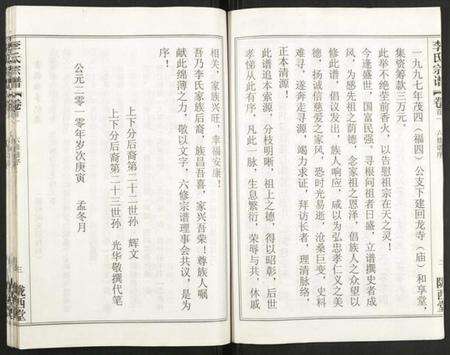 李氏宗谱
卷
六修宗序
陇西堂
一九九七年茂四（福四）公支下建回龙寺（庙）和享堂，
集资筹款三万元。
此举不绝茔前香火，以告慰祖宗在天之灵！
今逢盛世，国富民强，寻根问祖者日盛，立谱撰史者成
风，为感先祖之荫德，念家祖之恩泽，倡族人之众望以
修此谱，倡议发出，族人响应，咸以为弘忠孝仁义之美
德，扬诚信慈爱之家风，恐时光易逝，沧桑巨变，史料
难寻，遂奔走寻源，竭力求证，拜访长者，理清脉络，
正本清源！
此谱追本索源，分枝明晰，祖上之德，得以昭彰，后世
孝悌从此有序，凡此一脉，生息繁衍，荣辱与共，休戚
相关，家族兴旺，幸福安康！
吾乃李氏家族后裔，族昌吾喜，家兴吾荣！尊族人嘱
献此绵薄之力，敬以文字，六修宗谱理事会共议，是为
序！
上下分后裔第二十二世孙　辉文
上下分后裔第二十三世孙　光华敬撰代笔
公元二〇一〇年岁次庚寅　孟冬月
李氏宗谱
卷
陇西堂